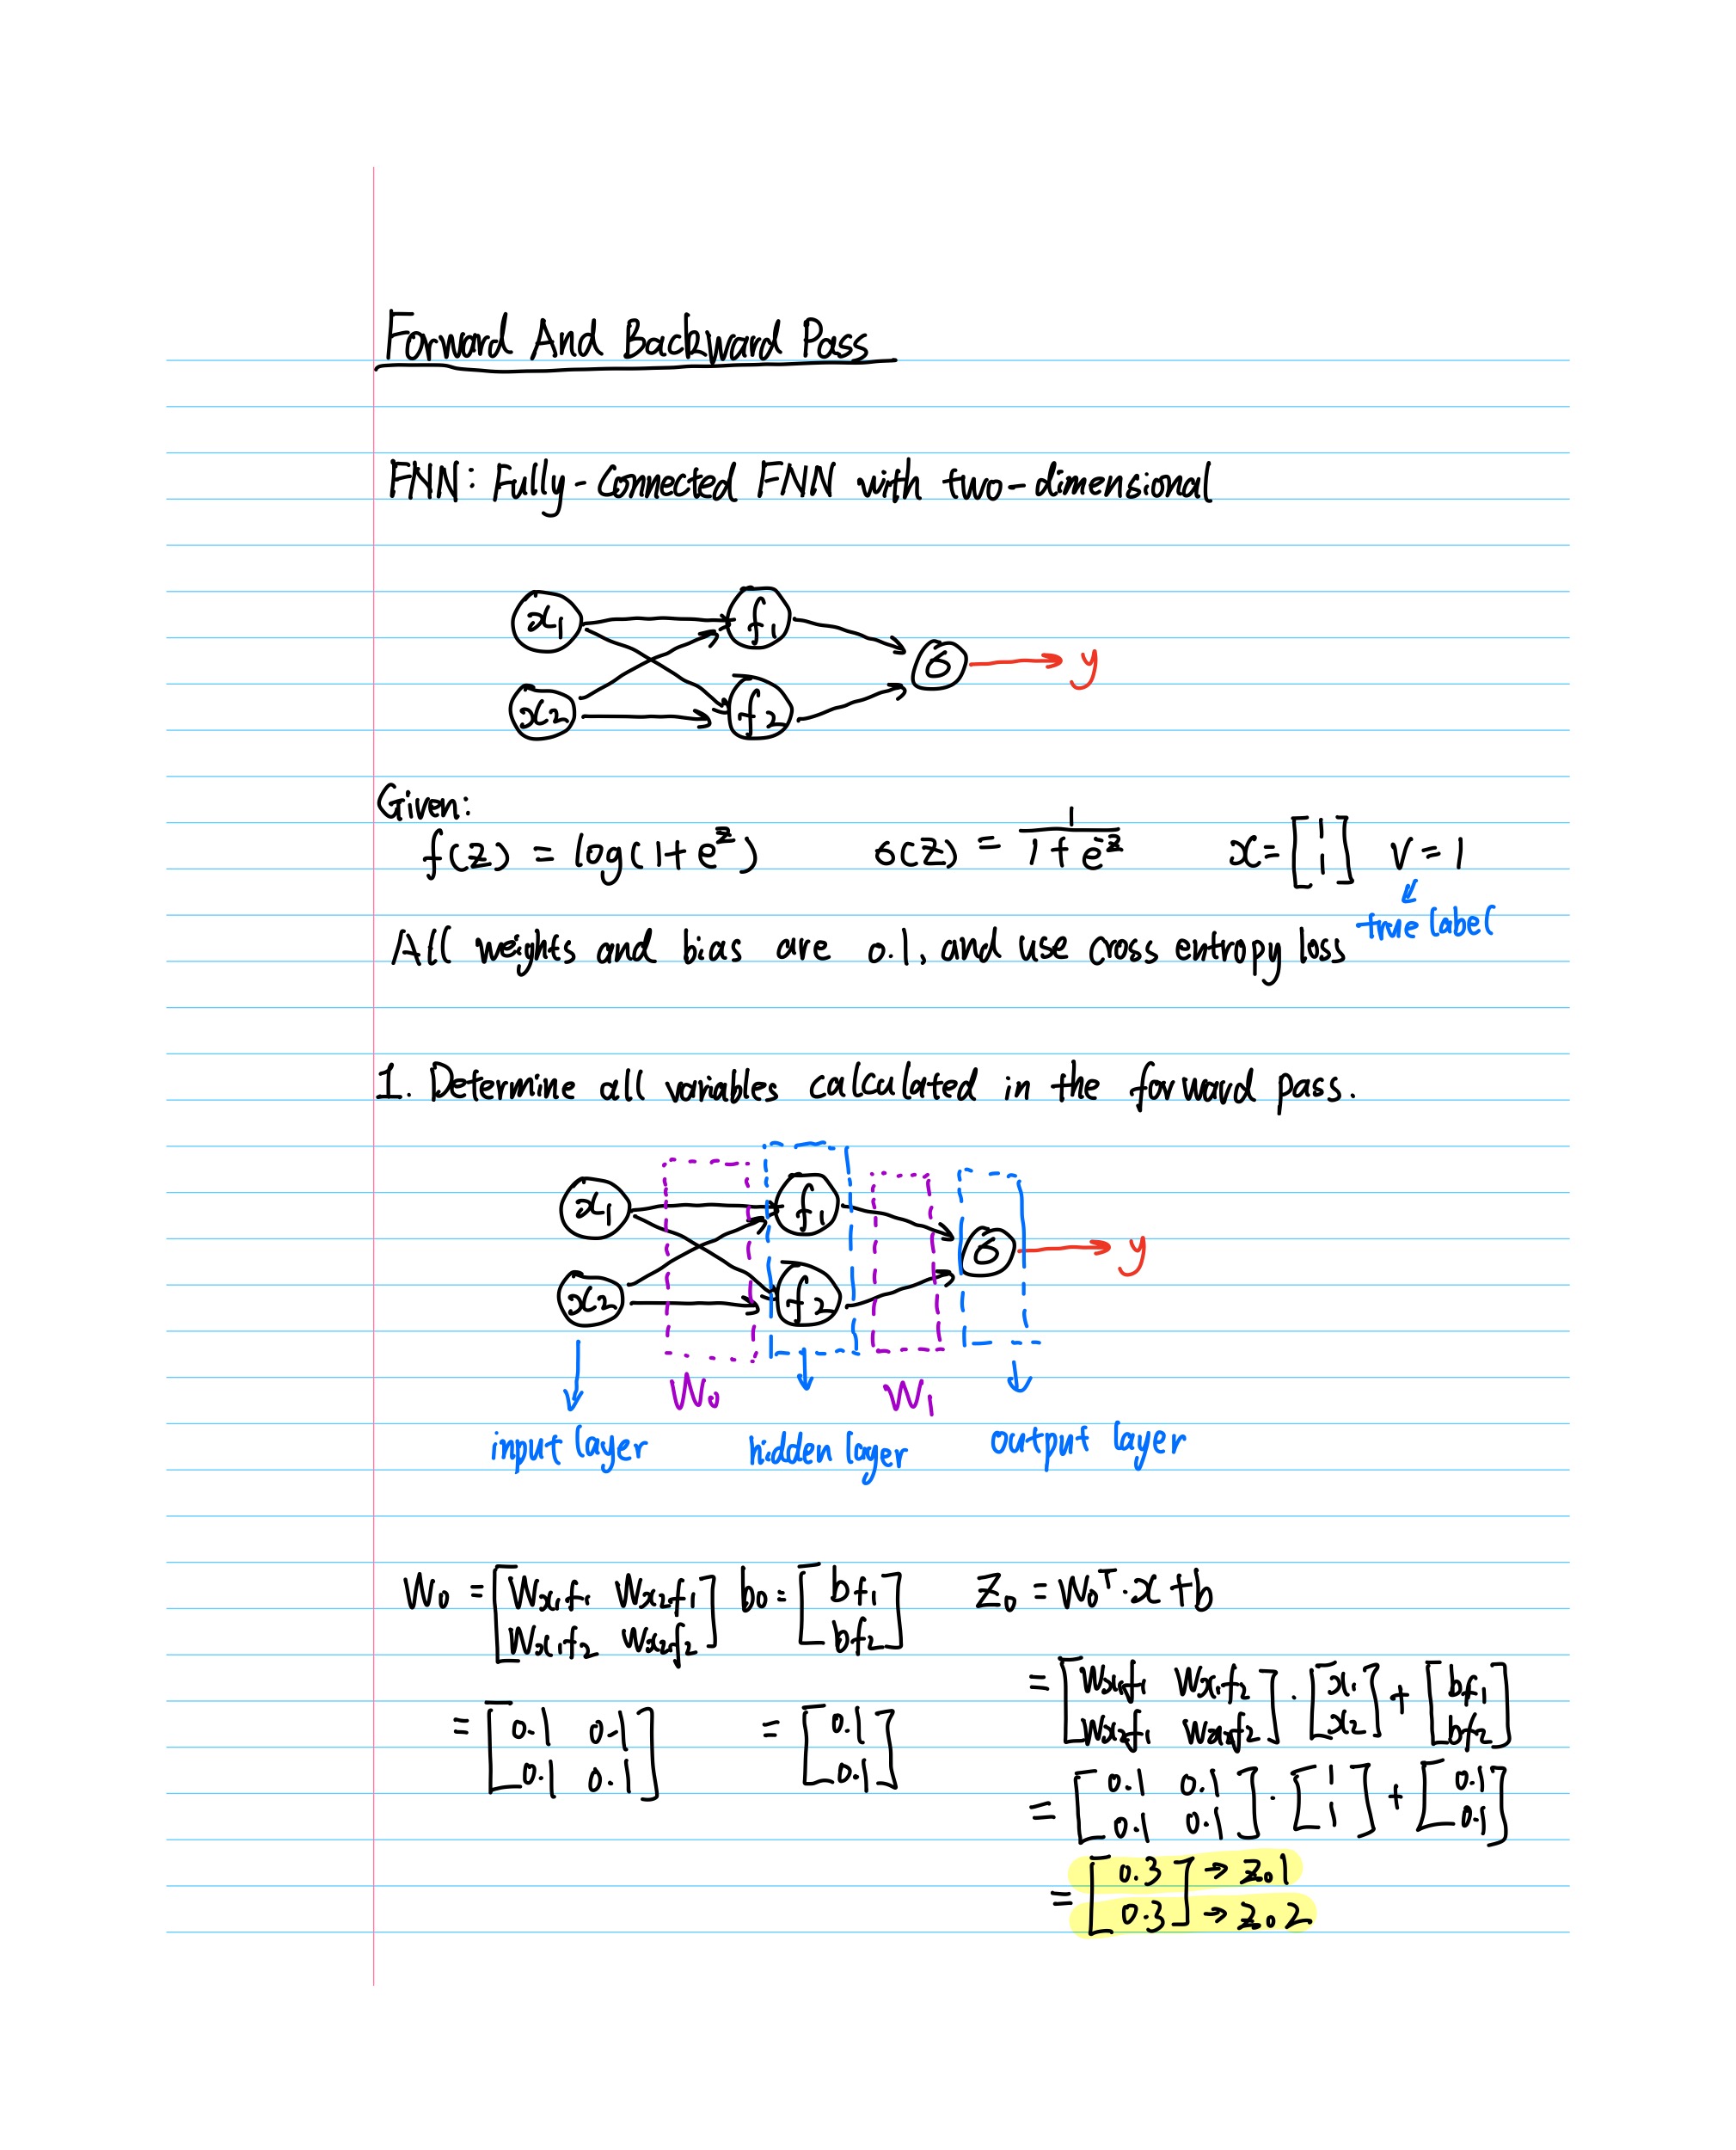 Forward And Backward Pass
FNN: Fully-Connected FNN with two-dimensional
x₁ f₁
σ → y
x₂ f₂
Given:
f(z) = log(1+e^z) σ(z) = 1/(1+e^z) x = [1 1] v = 1
true label
All weights and bias are 0.1, and use cross entropy loss
1. Determine all variables calculated in the forward pass.
x₁ f₁
σ → y
x₂ f₂
W₀ W₁
input layer hidden layer output layer
W₀ = [Wx₁f₁ Wx₂f₁; Wx₁f₂ Wx₂f₂] b₀ = [bf₁; bf₂] Z₀ = W₀ᵀ·x+b
= [Wx₁f₁ Wx₁f₂; Wx₂f₁ Wx₂f₂]·[x₁; x₂] + [bf₁; bf₂]
= [0.1 0.1; 0.1 0.1] = [0.1; 0.1]
= [0.1 0.1; 0.1 0.1]·[1; 1] + [0.1; 0.1]
= [0.3 → Z₀1
0.3] → Z₀2